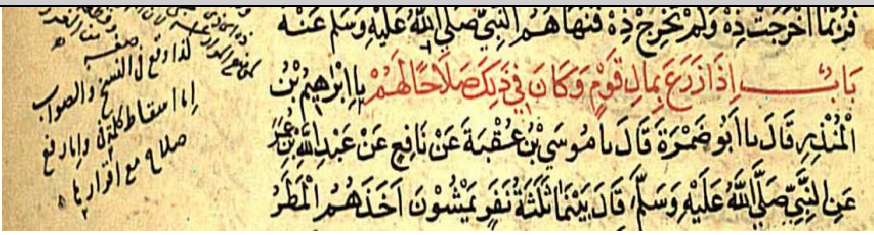 فربما أخرجت ذه ولم تخرج ذه فنهاهم النبي صلى الله عليه وسلم عنه
باب إذا زرع بمال قوم وكان في ذلك صلاحا لهم نا إبراهيم بن
المنذر قال نا أبو ضمرة قال نا موسى بن عقبة عن نافع عن عبد الله بن عمر
عن النبي صلى الله عليه وسلم قال بينما ثلثة نفر يمشون أخذهم المطر
كذا وقع في النسخ والصواب
إما إسقاط كلمة في وإما رفع
صلاح مع إقرارها